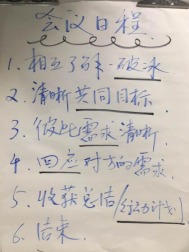 会议日程
1. 相互了解—破冰
2. 清晰共同目标.
3. 彼此需求清晰.
4. 回应对方的需求.
5. 收获总结/行动计划
6. 结束.